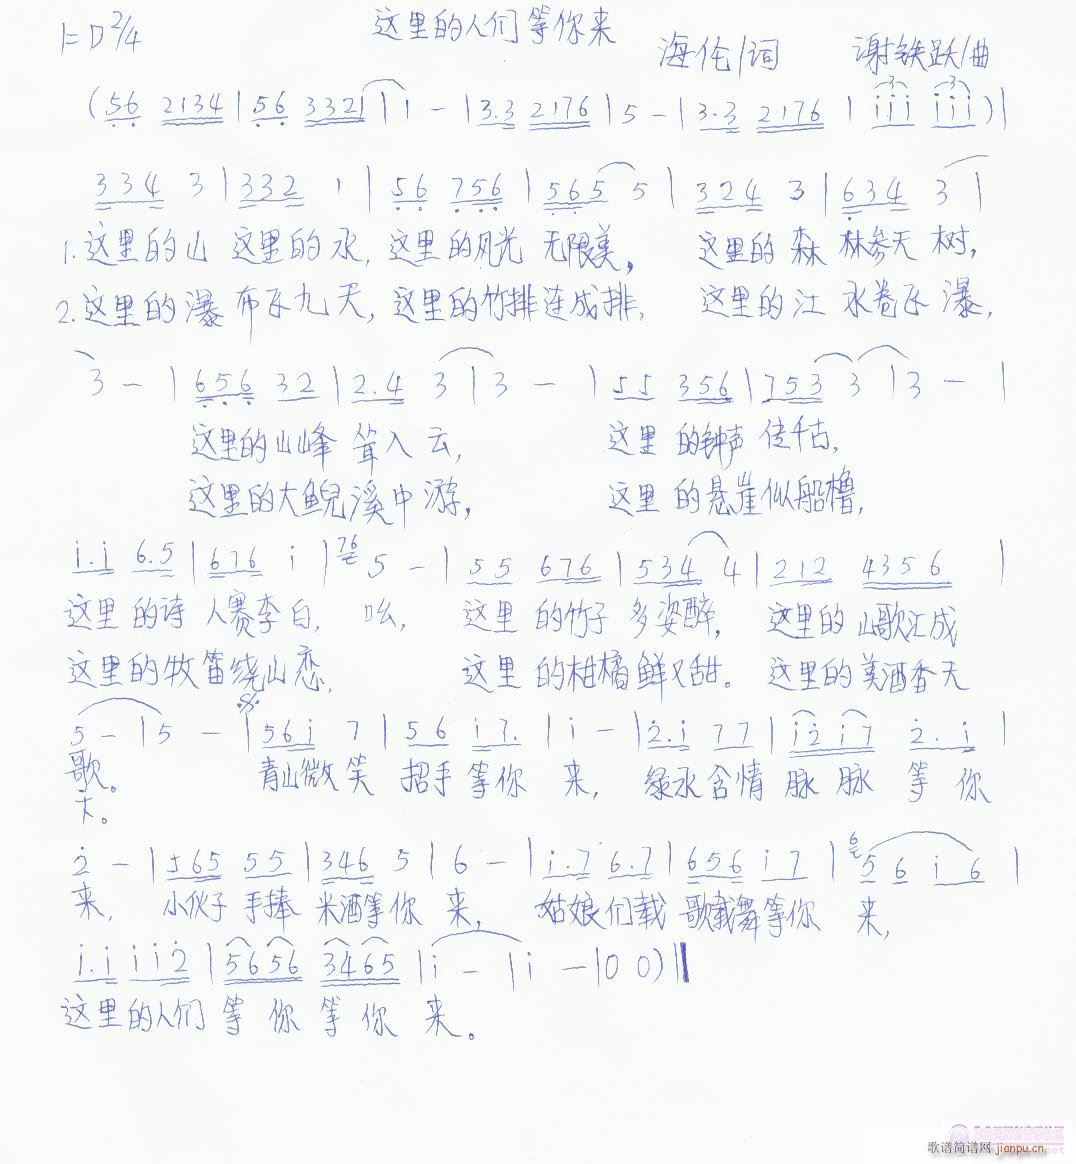 这里的人们等你来
1=D 2/4
海伦/词 谢铁跃/曲
(56 2134 | 56 3321 | 1 - | 3.3 2176 | 5 - | 3.3 2176 | iii iii) |
334 3 | 332 1 | 56 756 | 565 5 | 324 3 | 634 3 |
1.这里的山 这里的水, 这里的风光 无限美, 这里的森 林参天 树,
2.这里的瀑 布飞九 天, 这里的竹排连成排, 这里的江 水卷飞 瀑,
3 - | 656 32 | 2.4 3 | 3 - | 55 356 | 753 3 | 3 - |
这里的山峰 耸入 云, 这里 的钟声 传千古,
这里的大鲵溪中 游, 这里 的悬崖似船橹,
i.i 6.5 | 676 i | 76 5 - | 55 676 | 534 4 | 212 4356 |
这里 的诗 人赛李白, 吆, 这里 的竹子 多姿醉, 这里的 山歌汇成
这里的牧笛绕山恋, 这里 的柑橘鲜又甜。 这里的 美酒香天
5 - | 5 - | 56i 7 | 56 i7. | i - | 2.i 77 | i2i7 2.i |
歌。 青山微笑 招手 等你 来, 绿水含情 脉 脉 等 你
下。
2 - | 565 55 | 346 5 | 6 - | i.7 6.7 | 656 i7 | 6 56i6 |
来, 小伙子 手捧 米酒等你 来, 姑娘们载 歌载舞等你 来,
i.i ii2 | 5656 3465 | i - | i - | 0 0) ||
这里的人们 等 你 等 你 来。
歌谱简谱网 jianpu.cn